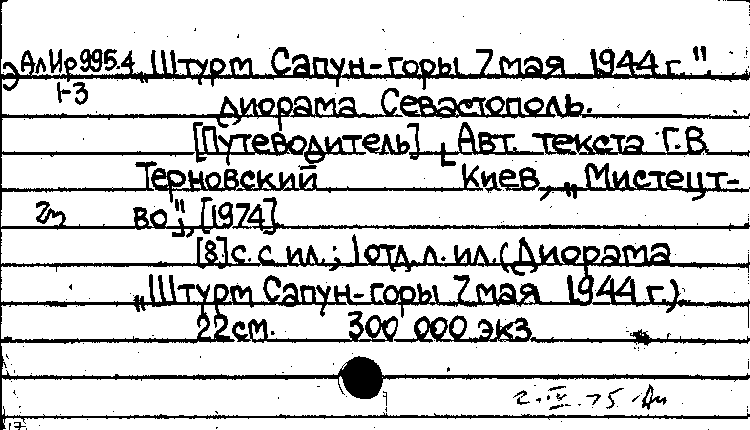 Э АлИр995.4 „Штурм Сапун-горы 7 мая 1944 г.".
1-3 диорама Севастополь.
[Путеводитель] Авт. текста Г.В.
Терновский Киев, „Мистецт-
во", [1974].
[8] с. с ил.; 1 отд. л. ил. (Диорама
„Штурм Сапун-горы 7 мая 1944 г.).
22 см. 300 000 экз.
2.IV.75
17